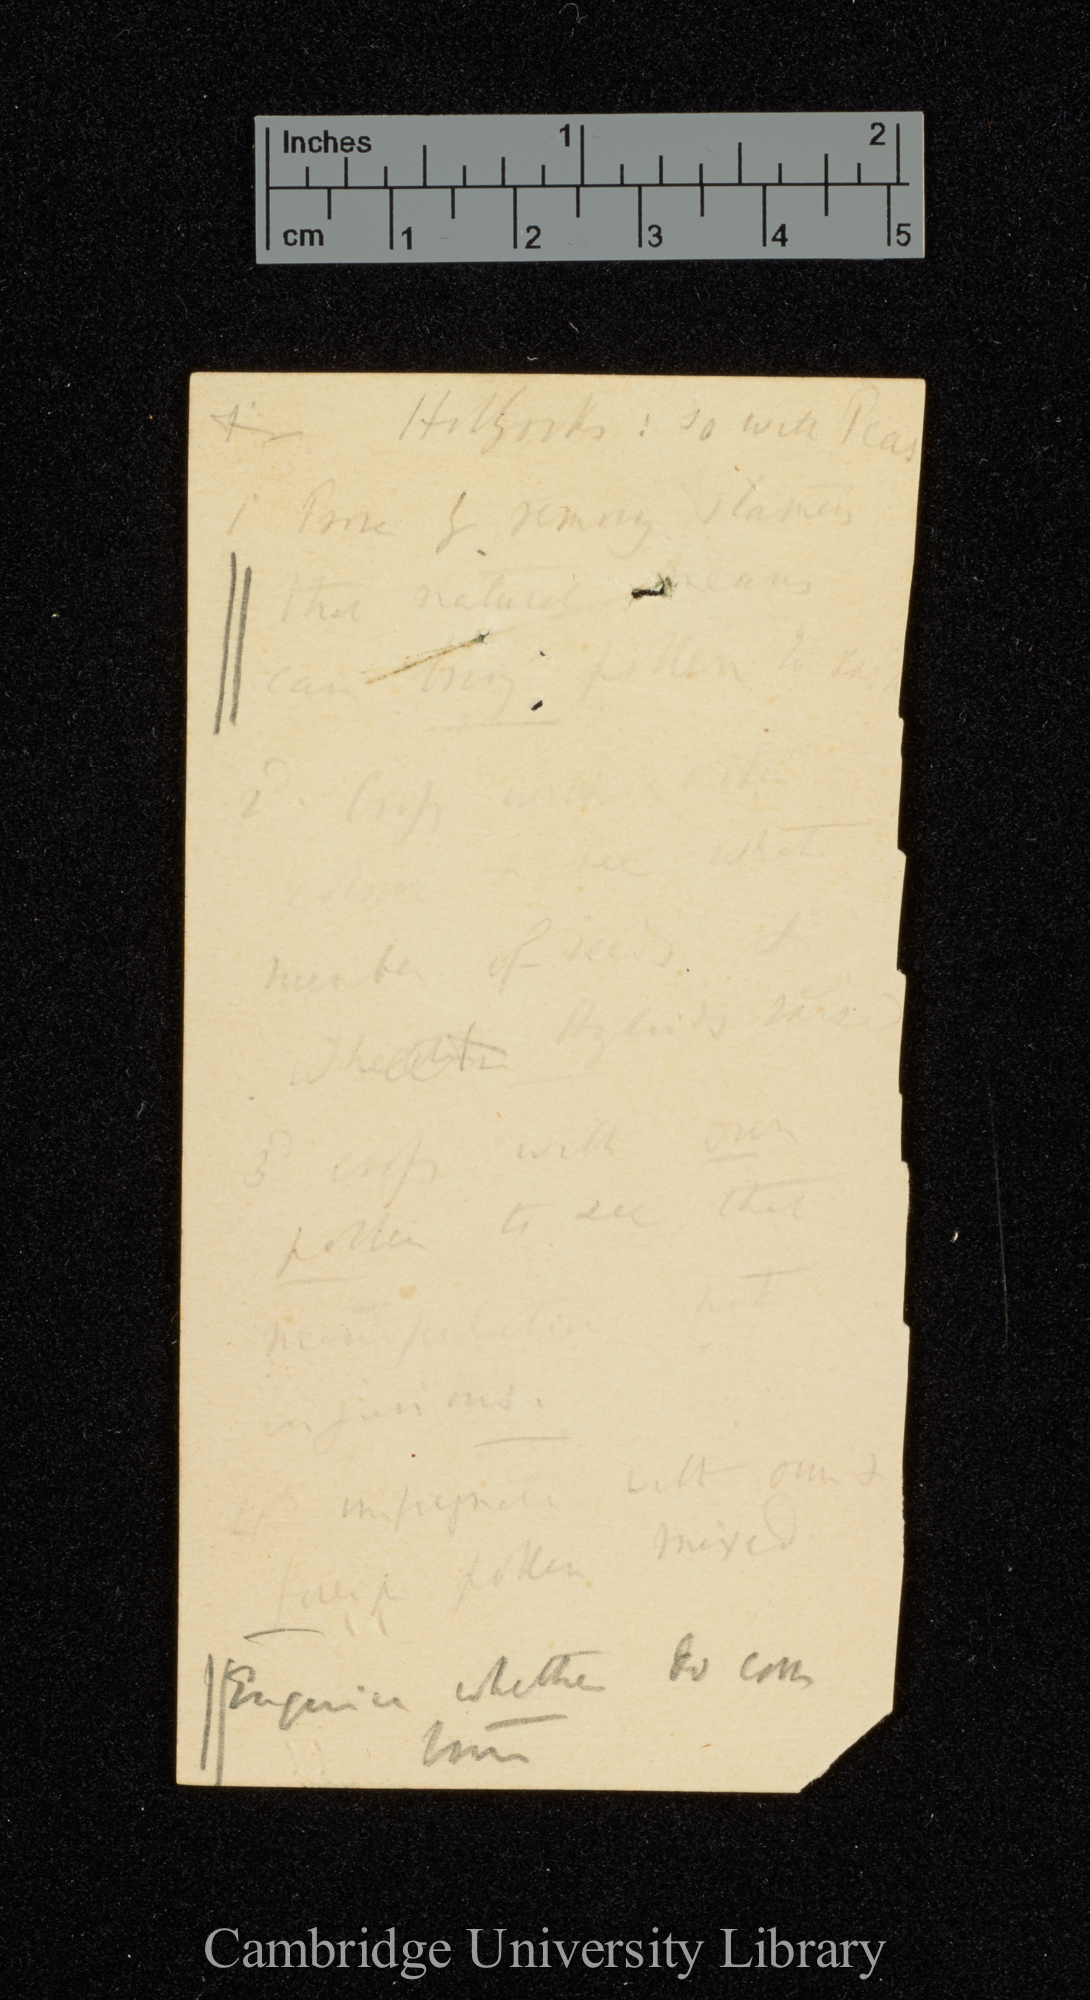 Inches 1 2
cm 1 2 3 4 5
Hollyocks : so will Peas
1 Prove by removing stamens
that natural means
can bring pollen to
2d. Cross with other
colour & see what
number of seeds &
Whether Hybrids raised
3d cross with own
pollen to see that
manipulation not
injurious.
4th impregnate with own &
foreign pollen mixed
Enquire whether do come
true
Cambridge University Library